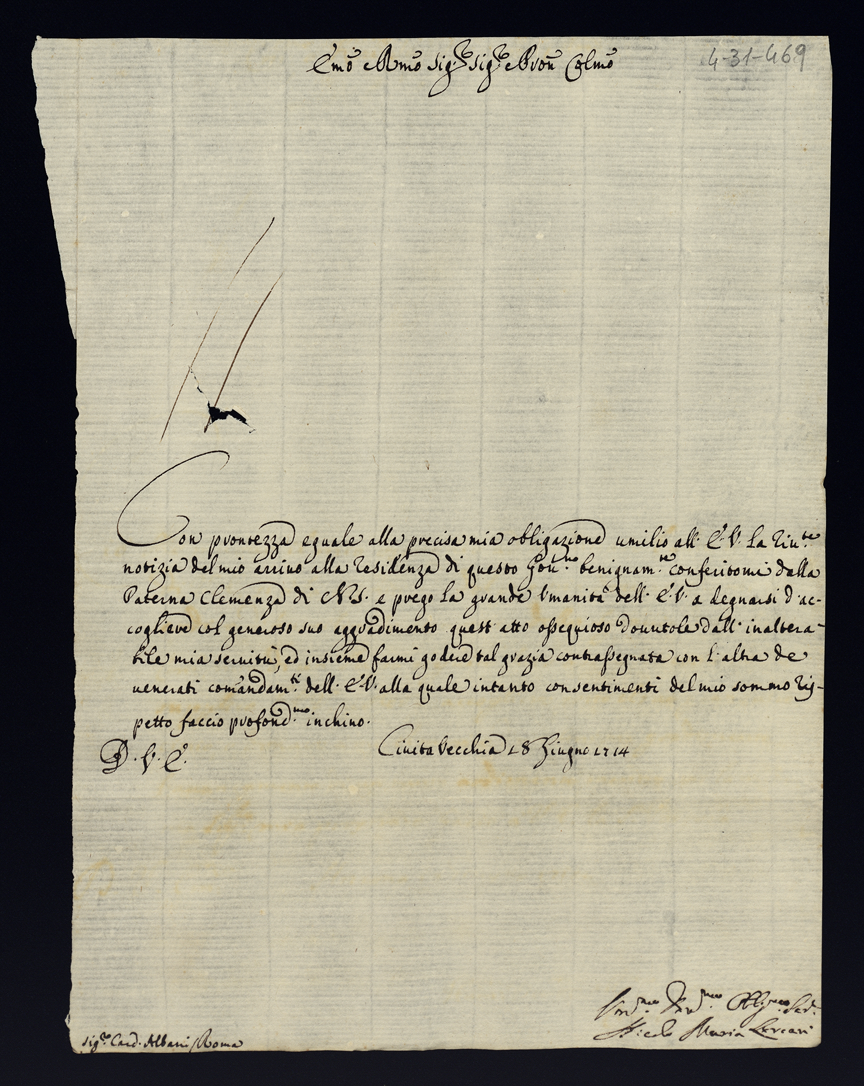 Emõ e Rmõ Sig.re Sig.re e Pron Colmõ
4-31-469
Con prontezza eguale alla precisa mia obligazione umilio all' E.V. la riu.te
notizia del mio arrivo alla residenza di questo Gov.no benignam.te conferitomi dalla
Paterna Clemenza di N.S. e prego la grande Umanità dell' E.V. a degnarsi d'ac-
cogliere col generoso suo aggradimento quest'atto ossequioso douutole dall'inaltera-
bile mia seruitù, ed insieme farmi godere tal grazia contrassegnata con l'altra de
uenerati comãndam.ti dell' E.V. alla quale intanto con sentimenti del mio sommo ris-
petto faccio profond.mo inchino.
D. V. E.
Ciuita Vecchia 18 Giugno 1714
Um.mo Dev.mo Obblig.mo Ser.
Nicolo Maria Lercari
Sig.re Card. Albani Roma